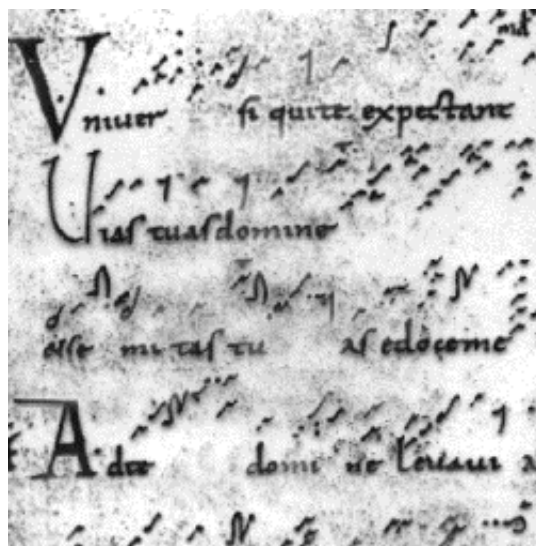 Vniuer si qui te expectant
Uias tuas domine
mitas tu as edoceme
Ad te domi ne leuaui a